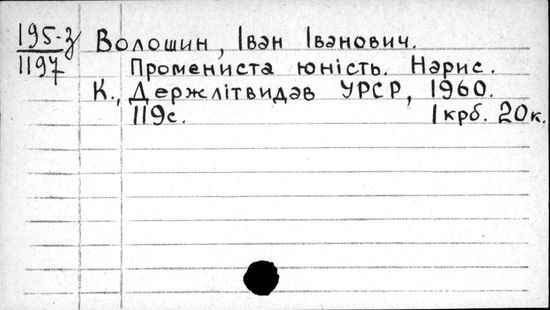 195-з
1197
Волошин, Іван Іванович.
Промениста юність. Нарис.
К., Держлітвидав УРСР, 1960.
119с. 1 крб. 20 к.